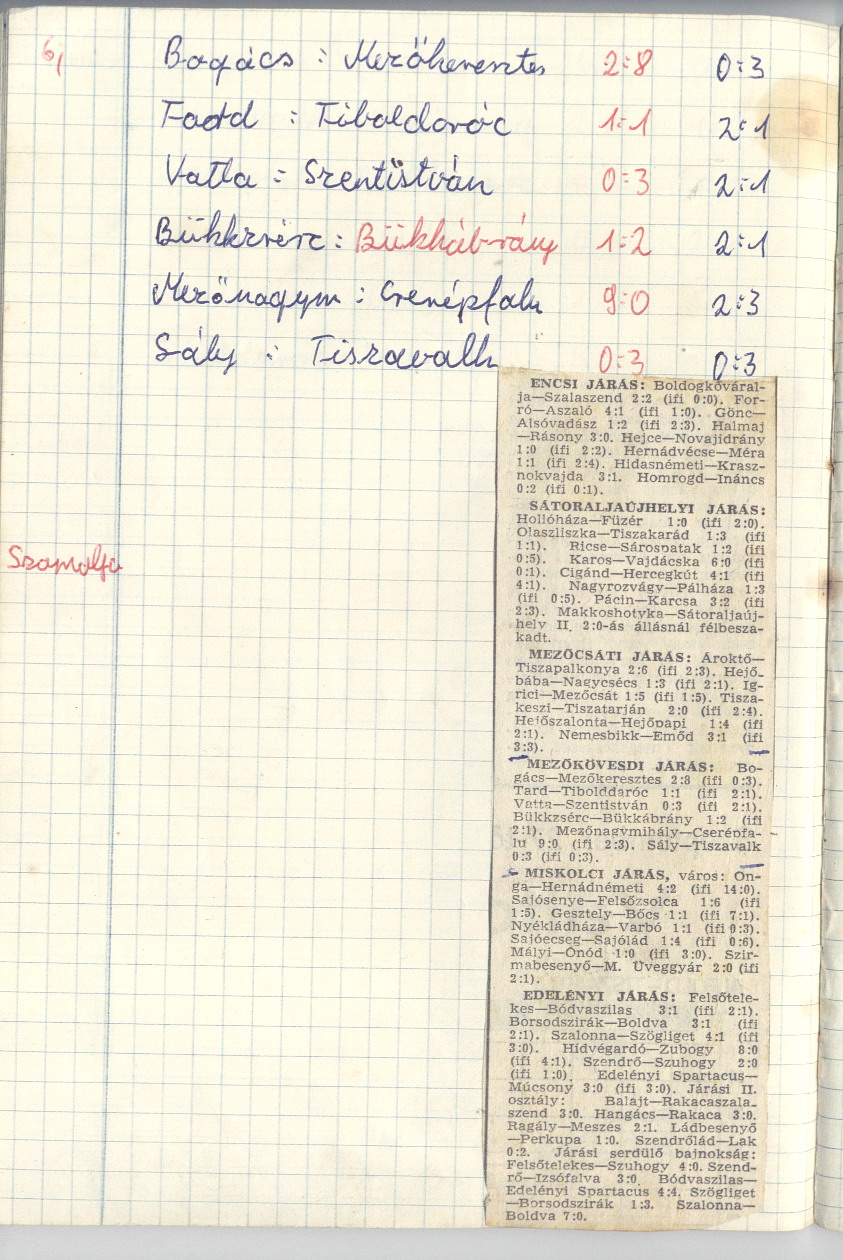 6,
Bogács : Mezőkeresztes 2:8 0:3
Tadd : Tibolddaróc 1:1 2:1
Vatta : Szentistván 0:3 2:1
Bükkzsérc : Bükkábrány 1:2 2:1
Mezőnagym : Cserépfalu 9:0 2:3
Sály : Tiszavalk 0:3 0:3
Szomolya
ENCSI JÁRÁS: Boldogkőváral-
ja—Szalaszend 2:2 (ifi 0:0). For-
ró—Aszaló 4:1 (ifi 1:0). Gönc—
Alsóvadász 1:2 (ifi 2:3). Halmaj
—Rásony 3:0. Hejce—Novajidrány
1:0 (ifi 2:2). Hernádvécse—Méra
1:1 (ifi 2:4). Hidasnémeti—Krasz-
nokvajda 3:1. Homrogd—Ináncs
0:2 (ifi 0:1).
SÁTORALJAÚJHELYI JÁRÁS:
Hollóháza—Füzér 1:0 (ifi 2:0).
Olaszliszka—Tiszakarád 1:3 (ifi
1:1). Ricse—Sárospatak 1:2 (ifi
0:5). Karos—Vajdácska 6:0 (ifi
0:1). Cigánd—Hercegkút 4:1 (ifi
4:1). Nagyrozvágy—Pálháza 1:3
(ifi 0:5). Pácin—Karcsa 3:2 (ifi
2:3). Makkoshotyka—Sátoraljaúj-
hely II. 2:0-ás állásnál félbesza-
kadt.
MEZŐCSÁTI JÁRÁS: Ároktő—
Tiszapalkonya 2:6 (ifi 2:3). Hejő-
bába—Nagycsécs 1:3 (ifi 2:1). Ig-
rici—Mezőcsát 1:5 (ifi 1:5). Tisza-
keszi—Tiszatarján 2:0 (ifi 2:4).
Hejőszalonta—Hejőpapi 1:4 (ifi
2:1). Nemesbikk—Emőd 3:1 (ifi
3:3).
MEZŐKÖVESDI JÁRÁS: Bo-
gács—Mezőkeresztes 2:8 (ifi 0:3).
Tard—Tibolddaróc 1:1 (ifi 2:1).
Vatta—Szentistván 0:3 (ifi 2:1).
Bükkzsérc—Bükkábrány 1:2 (ifi
2:1). Mezőnagymihály—Cserépfa-
lu 9:0 (ifi 2:3). Sály—Tiszavalk
0:3 (ifi 0:3).
MISKOLCI JÁRÁS, város: On-
ga—Hernádnémeti 4:2 (ifi 14:0).
Sajósenye—Felsőzsolca 1:6 (ifi
1:5). Gesztely—Bőcs 1:1 (ifi 7:1).
Nyékládháza—Varbó 1:1 (ifi 0:3).
Sajóecseg—Sajólád 1:4 (ifi 0:6).
Mályi—Ónód 1:0 (ifi 3:0). Szir-
mabesenyő—M. Üveggyár 2:0 (ifi
2:1).
EDELÉNYI JÁRÁS: Felsőtele-
kes—Bódvaszilas 3:1 (ifi 2:1).
Borsodszirák—Boldva 3:1 (ifi
2:1). Szalonna—Szögliget 4:1 (ifi
3:0). Hidvégardó—Zubogy 8:0
(ifi 4:1). Szendrő—Szuhogy 2:0
(ifi 1:0). Edelényi Spartacus—
Múcsony 3:0 (ifi 3:0). Járási II.
osztály: Balajt—Rakacaszala-
szend 3:0. Hangács—Rakaca 3:0.
Ragály—Meszes 2:1. Ládbesenyő
—Perkupa 1:0. Szendrőlád—Lak
0:2. Járási serdülő bajnokság:
Felsőtelekes—Szuhogy 4:0. Szend-
rő—Izsófalva 3:0. Bódvaszilas—
Edelényi Spartacus 4:4. Szögliget
—Borsodszirák 1:3. Szalonna—
Boldva 7:0.